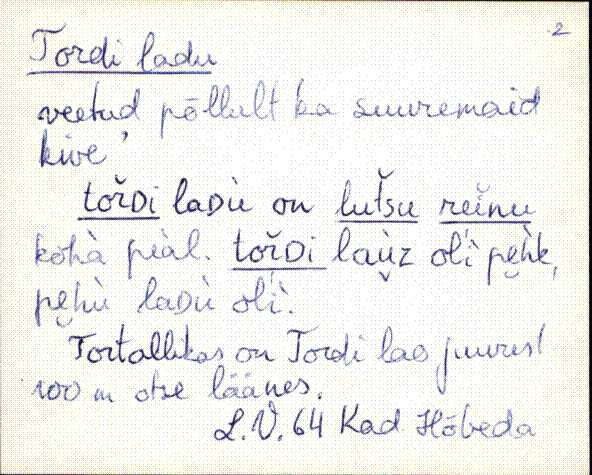 2
Tordi ladu
veetud põllult ka suuremaid
kive
tořDi laDù on lutšu reinu
kohà piàl. tořDi laùz olì pehk,
pehù laDù olì.
Tortallikas on Tordi lao juurest
100 m otse läänes.
L.V. 64 Kad Hõbeda